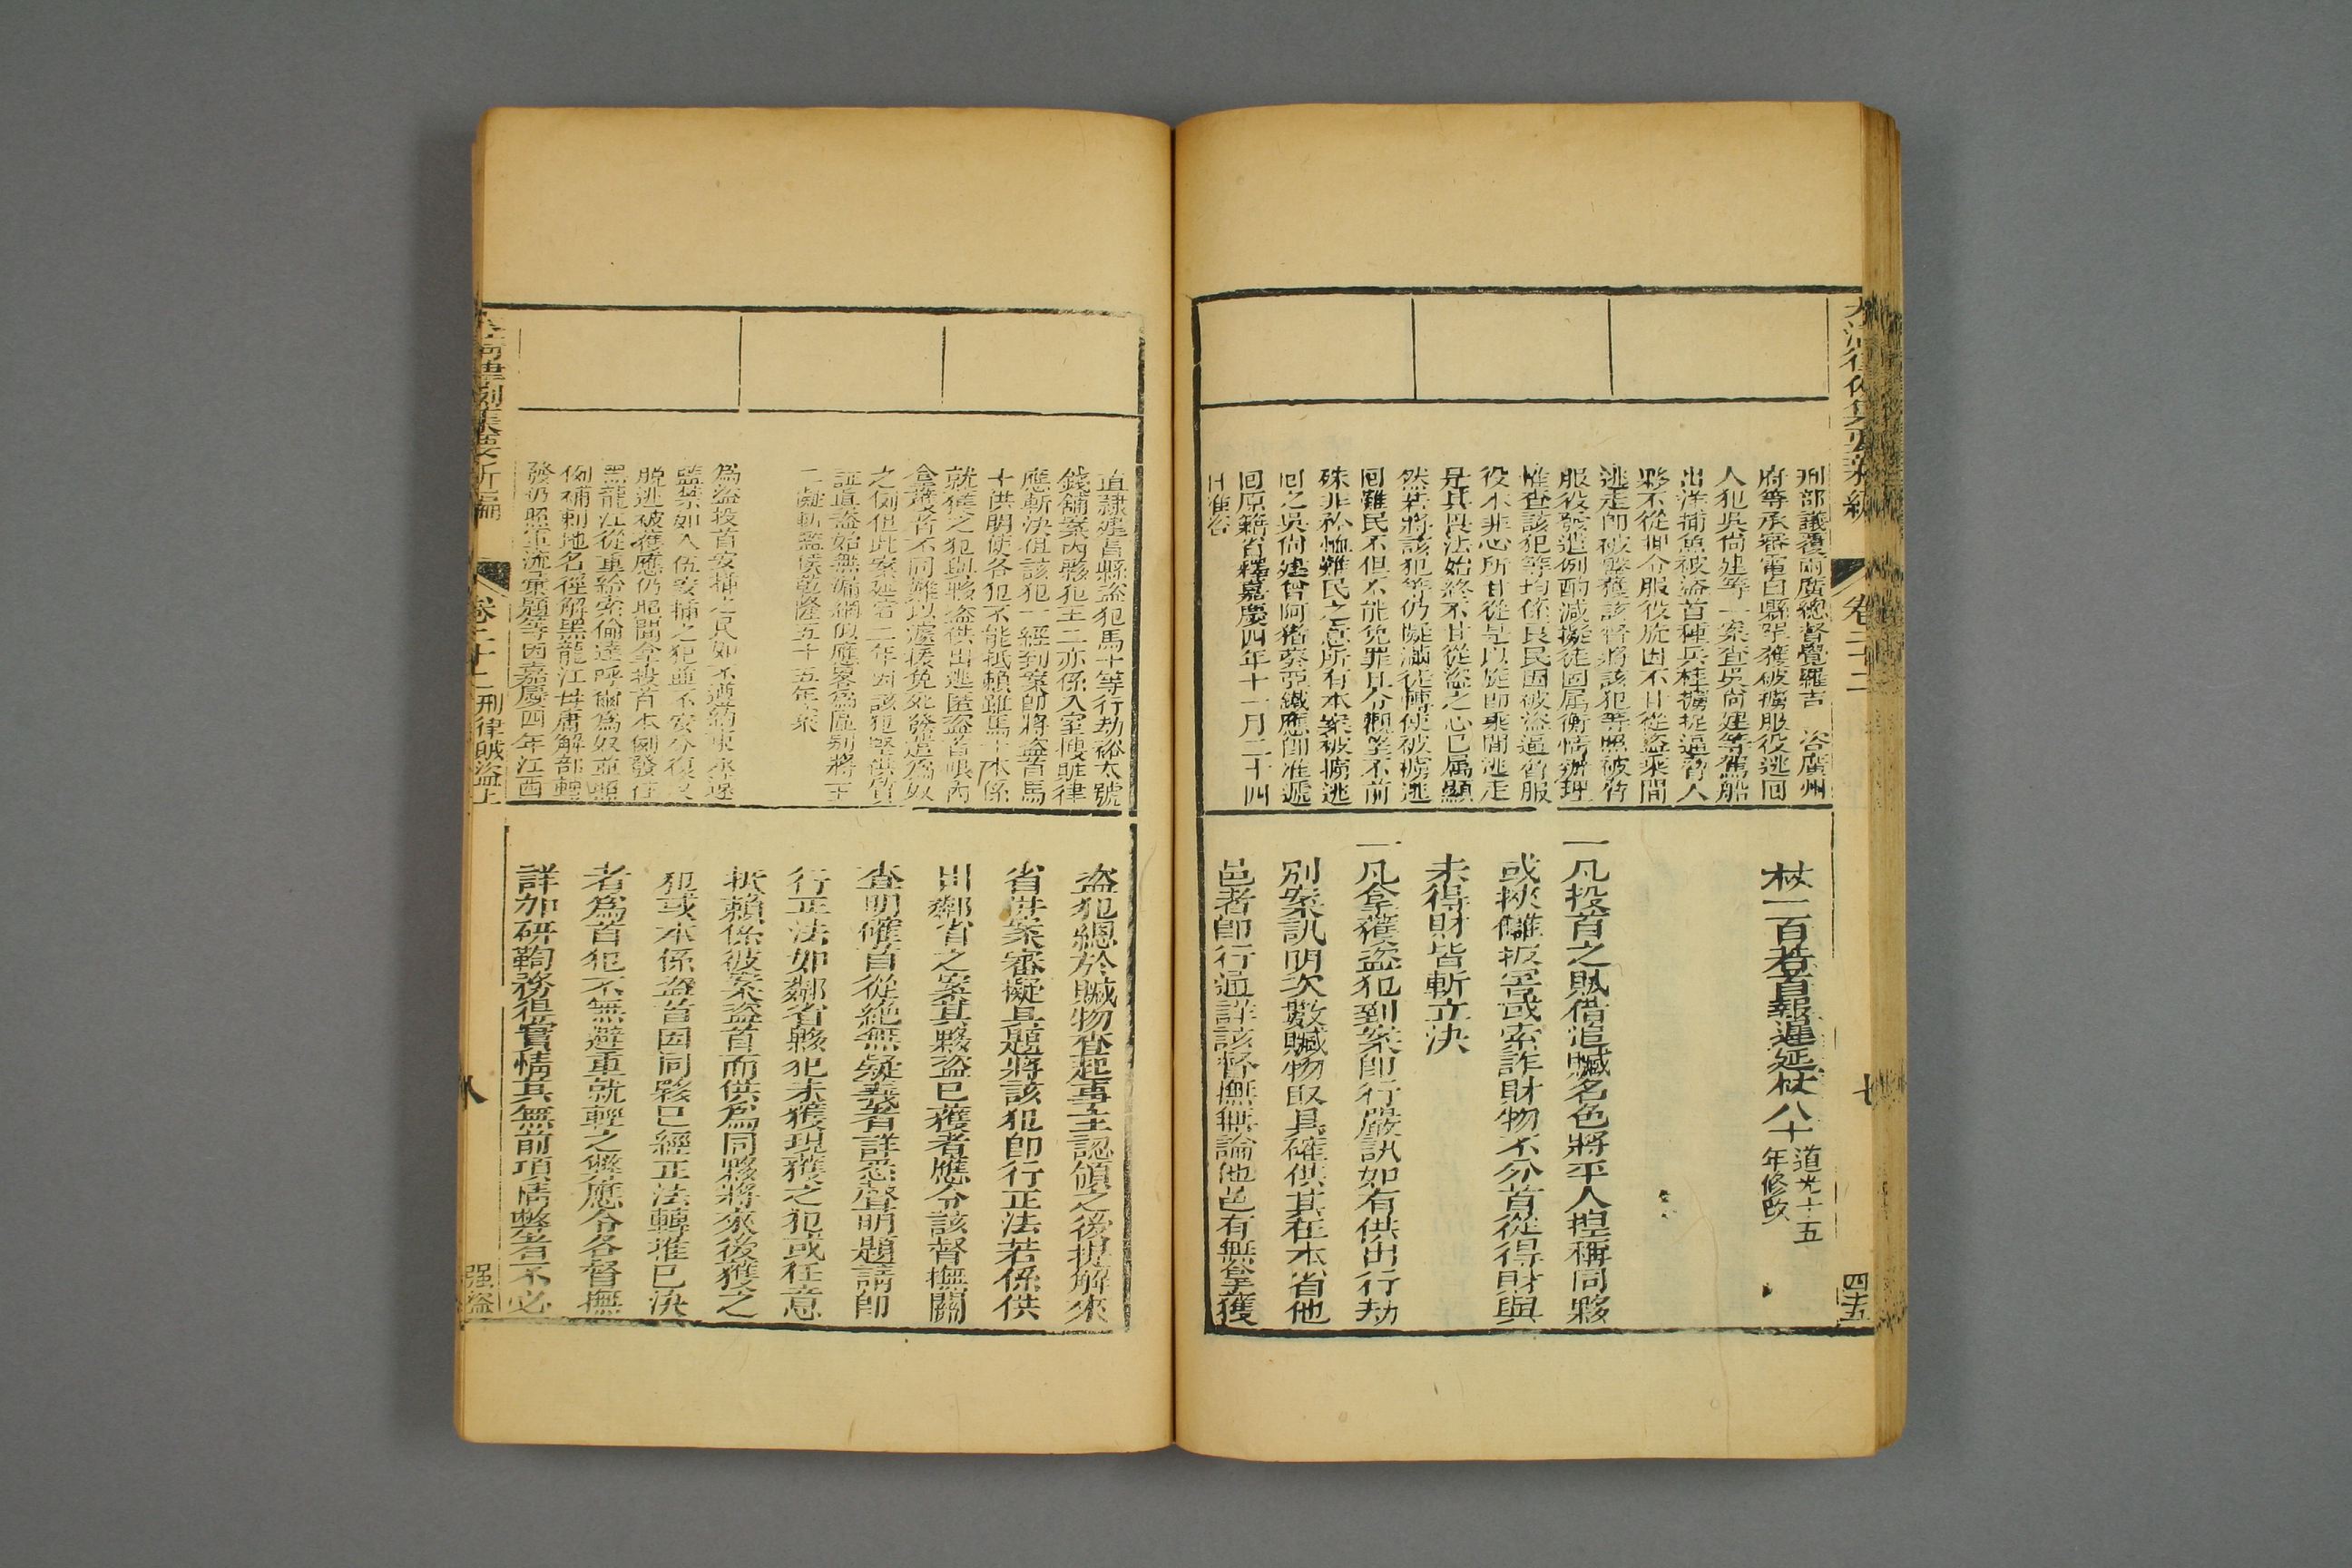 大清律例集要新編
卷二十二
七
四五
刑部議覆兩廣總督覺羅吉 咨廣州
府等承審電白縣拏獲被擄服役逃回
人犯吳尚建等一案查吳尚建等駕船
出洋捕魚被盜首種兵桂擄捉逼脅入
夥不從押令服役旋因不甘從盜乘間
逃走即被拏獲該督將該犯等照被脅
服役發遣例酌減擬徒固屬衡情辦理
惟查該犯等均係良民因被盜逼脅服
役本非心所甘從是以旋即乘間逃走
是其畏法始終不甘從盜之心已屬顯
然若將該犯等仍擬滿徒轉使被擄逃
回難民不但不能免罪且分觀望不前
殊非矜恤難民之意所有本案被擄逃
回之吳尚建曾阿猪蔡亞鐵應即准遞
回原籍省釋嘉慶四年十一月二十四
日准咨
杖一百若首報遲延杖八十道光十五年修改
一凡投首之賊借追贓名色將平人揑稱同夥
或挾讎扳害或索詐財物不分首從得財與
未得財皆斬立決
一凡拿獲盜犯到案即行嚴訊如有供出行劫
別案訊明次數贓物取具確供其在本省他
邑者即行通詳該督撫無論他邑有無拿獲
直隸建昌縣盜犯馬十等行劫裕太號
錢舖案內夥犯王二亦係入室搜贓律
應斬決但該犯一經到案即將盜首馬
十供明使各犯不能抵賴雖馬十本係
就獲之犯與夥盜供出逃匿盜首限內
拿獲者不同難以遽援免死發遣為奴
之例但此案延宕二年因該犯堅供質
証真盜始無漏網似應畧為區別將王
二擬斬監候乾隆五十五年案
為盜投首安插之民如不遵約束永遠
監禁如入伍安插之犯並不安分復又
脫逃被獲應仍照聞拿投首本例發往
黑龍江從重給索倫達呼爾為奴並照
例補刺地名徑解黑龍江毋庸解部轉
發仍照軍流彙題等因嘉慶四年江西
盜犯總於贓物查起事主認領之後提解來
省併案審擬具題將該犯即行正法若係供
出鄰省之案其夥盜已獲者應令該督撫關
查明確首從絕無疑義者詳悉聲明題請即
行正法如鄰省夥犯未獲現獲之犯或任意
抵賴係彼案盜首而供為同夥將來後獲之
犯或本係盜首因同夥已經正法轉推已決
者為首犯不無避重就輕之弊應令各督撫
詳加研鞫務得實情其無前項情弊者不必
大清律例集要新編
卷二十二 刑律賊盜上
八
强盜